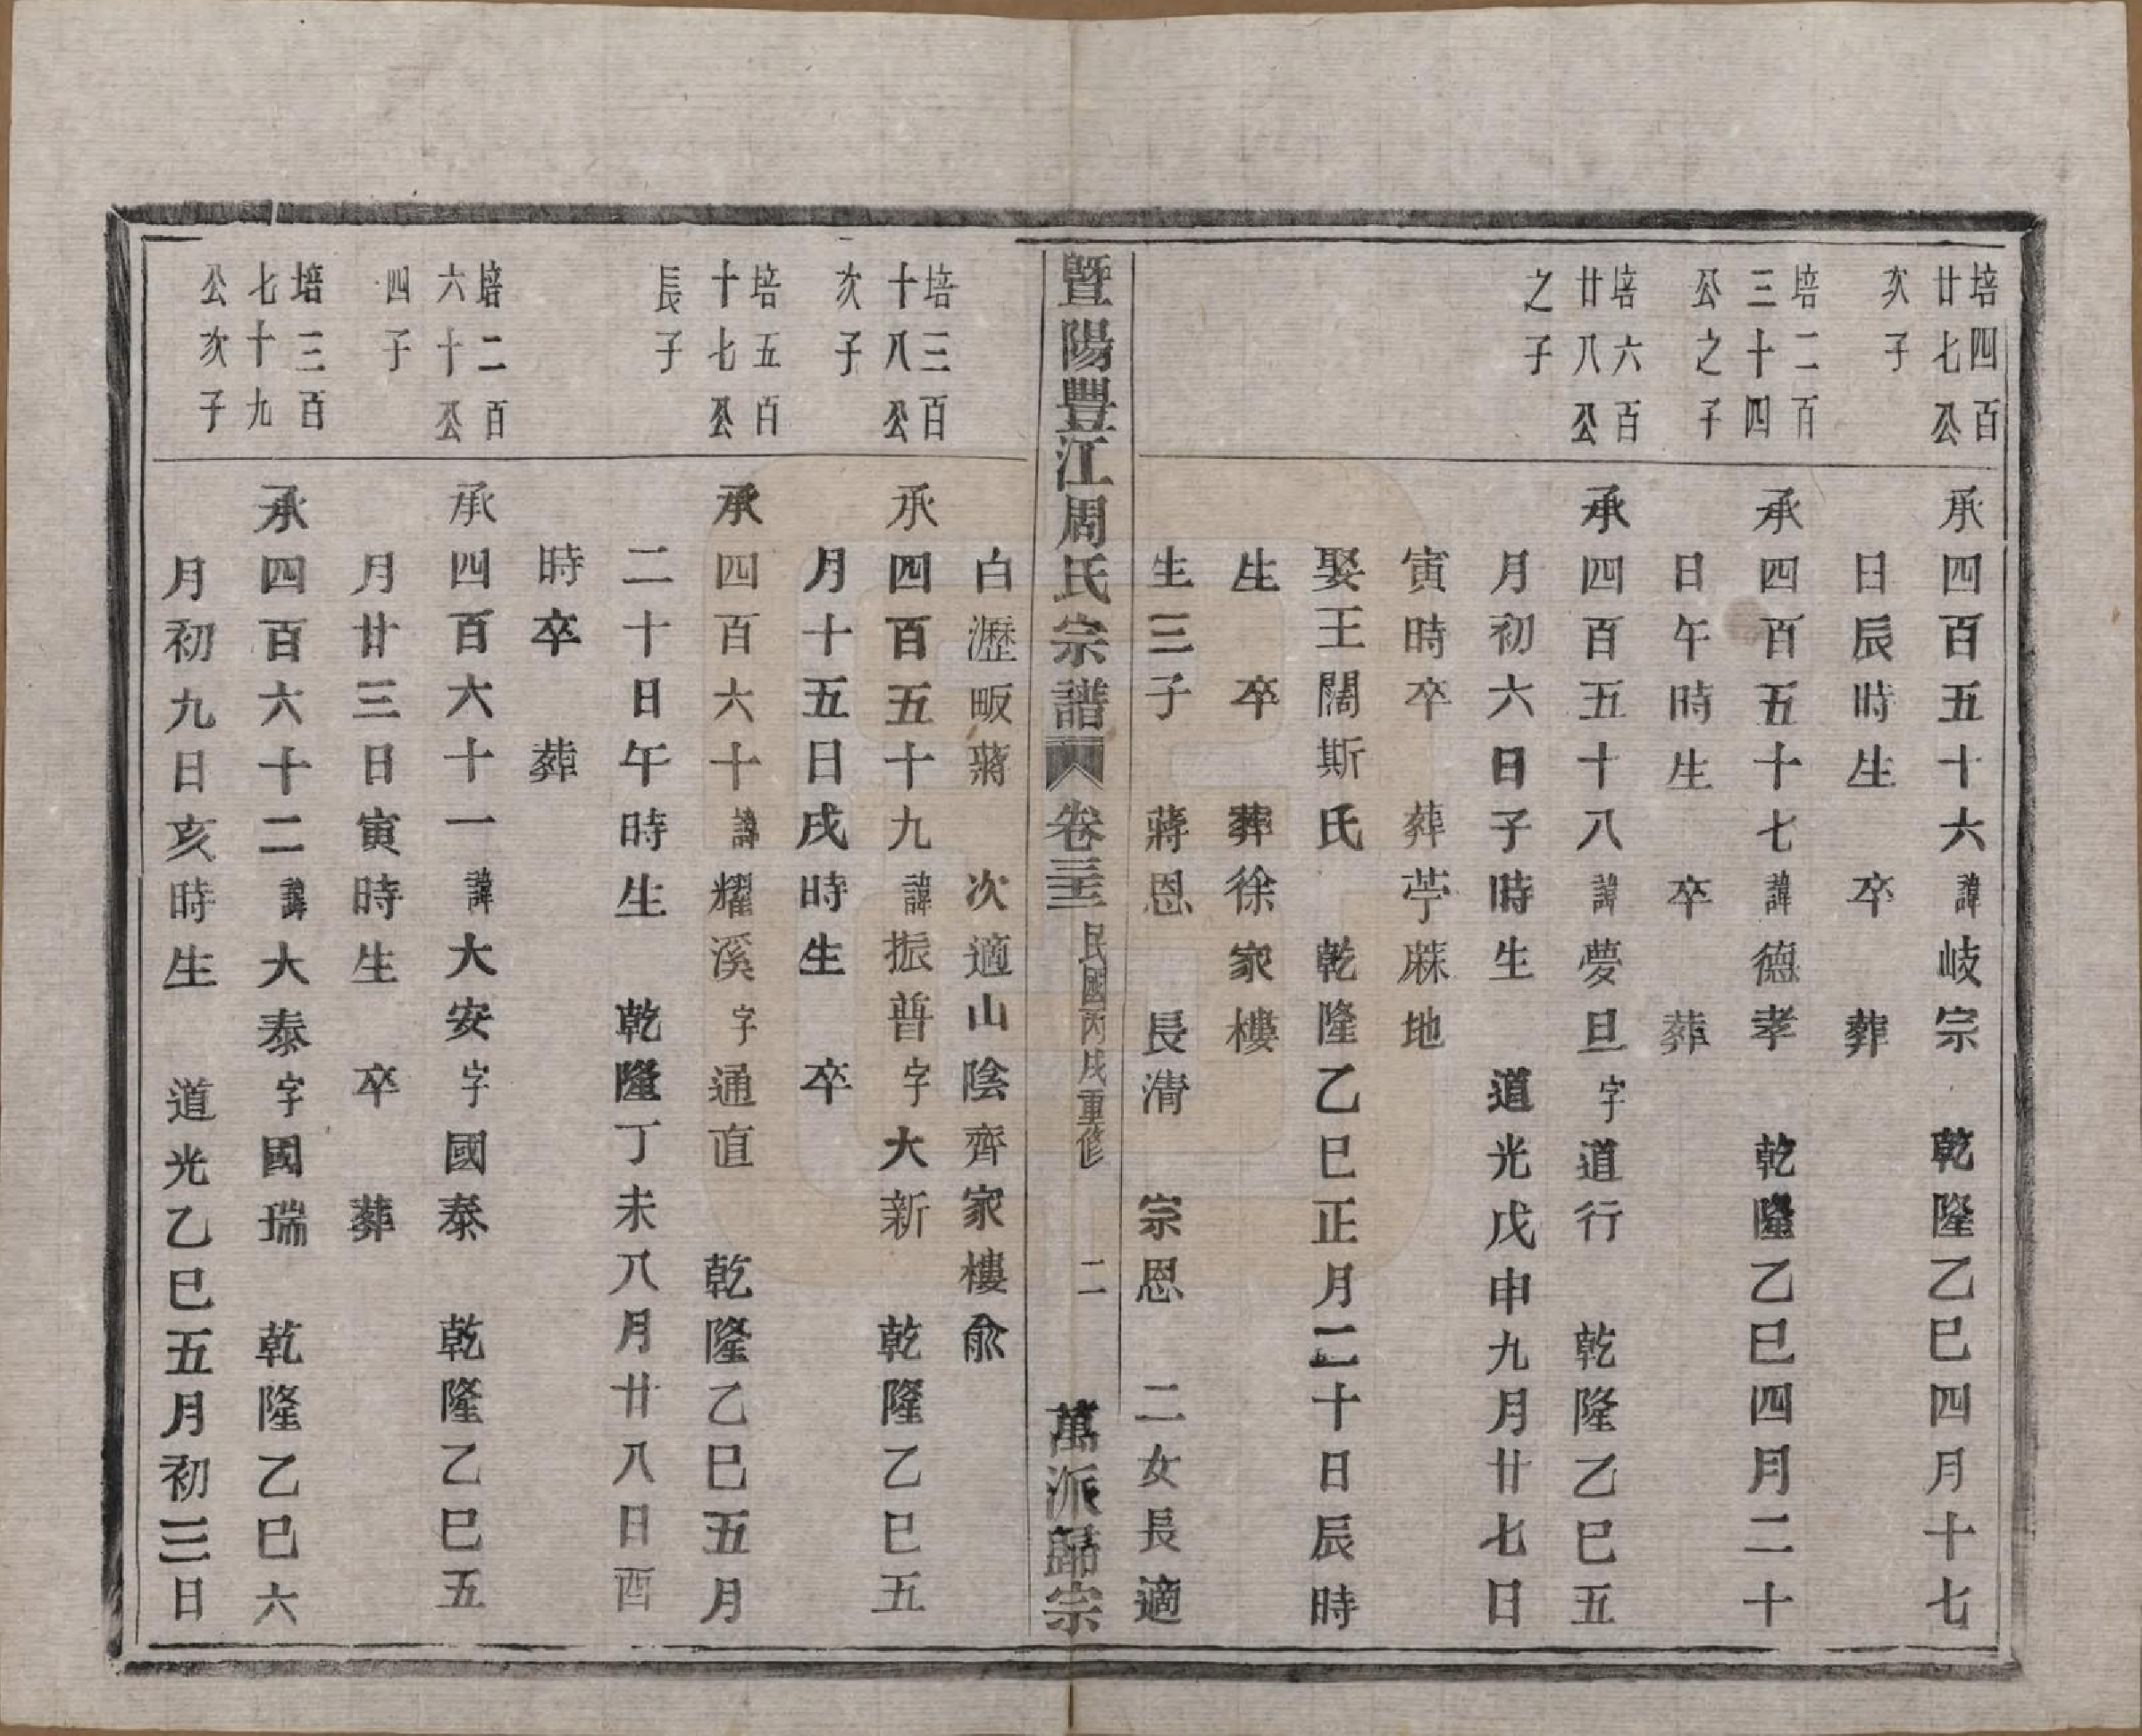 培四百
廿七公
次子
承四百五十六諱岐宗 乾隆乙巳四月十七
日辰時生 卒 葬
培二百
三十四
公之子
承四百五十七諱德孝 乾隆乙巳四月二十
日午時生 卒 葬
培六百
廿八公
之子
承四百五十八諱夢旦字道行 乾隆乙巳五
月初六日子時生 道光戊申九月廿七日
寅時卒 葬苧蔴地
娶王闊斯氏 乾隆乙巳正月二十日辰時
生 卒 葬徐家樓
生三子 蔣恩 長淸 宗恩 二女長適
暨陽豐江周氏宗譜 卷三三 民國丙戌重修 二 萬派歸宗
白瀝畈蔣 次適山陰齊家樓俞
培三百
十八公
次子
承四百五十九諱振普字大新 乾隆乙巳五
月十五日戌時生 卒
培五百
十七公
長子
承四百六十諱耀溪字通直 乾隆乙巳五月
二十日午時生 乾隆丁未八月廿八日酉
時卒 葬
培二百
六十公
四子
承四百六十一諱大安字國泰 乾隆乙巳五
月廿三日寅時生 卒 葬
培三百
七十九
公次子
承四百六十二諱大泰字國瑞 乾隆乙巳六
月初九日亥時生 道光乙巳五月初三日